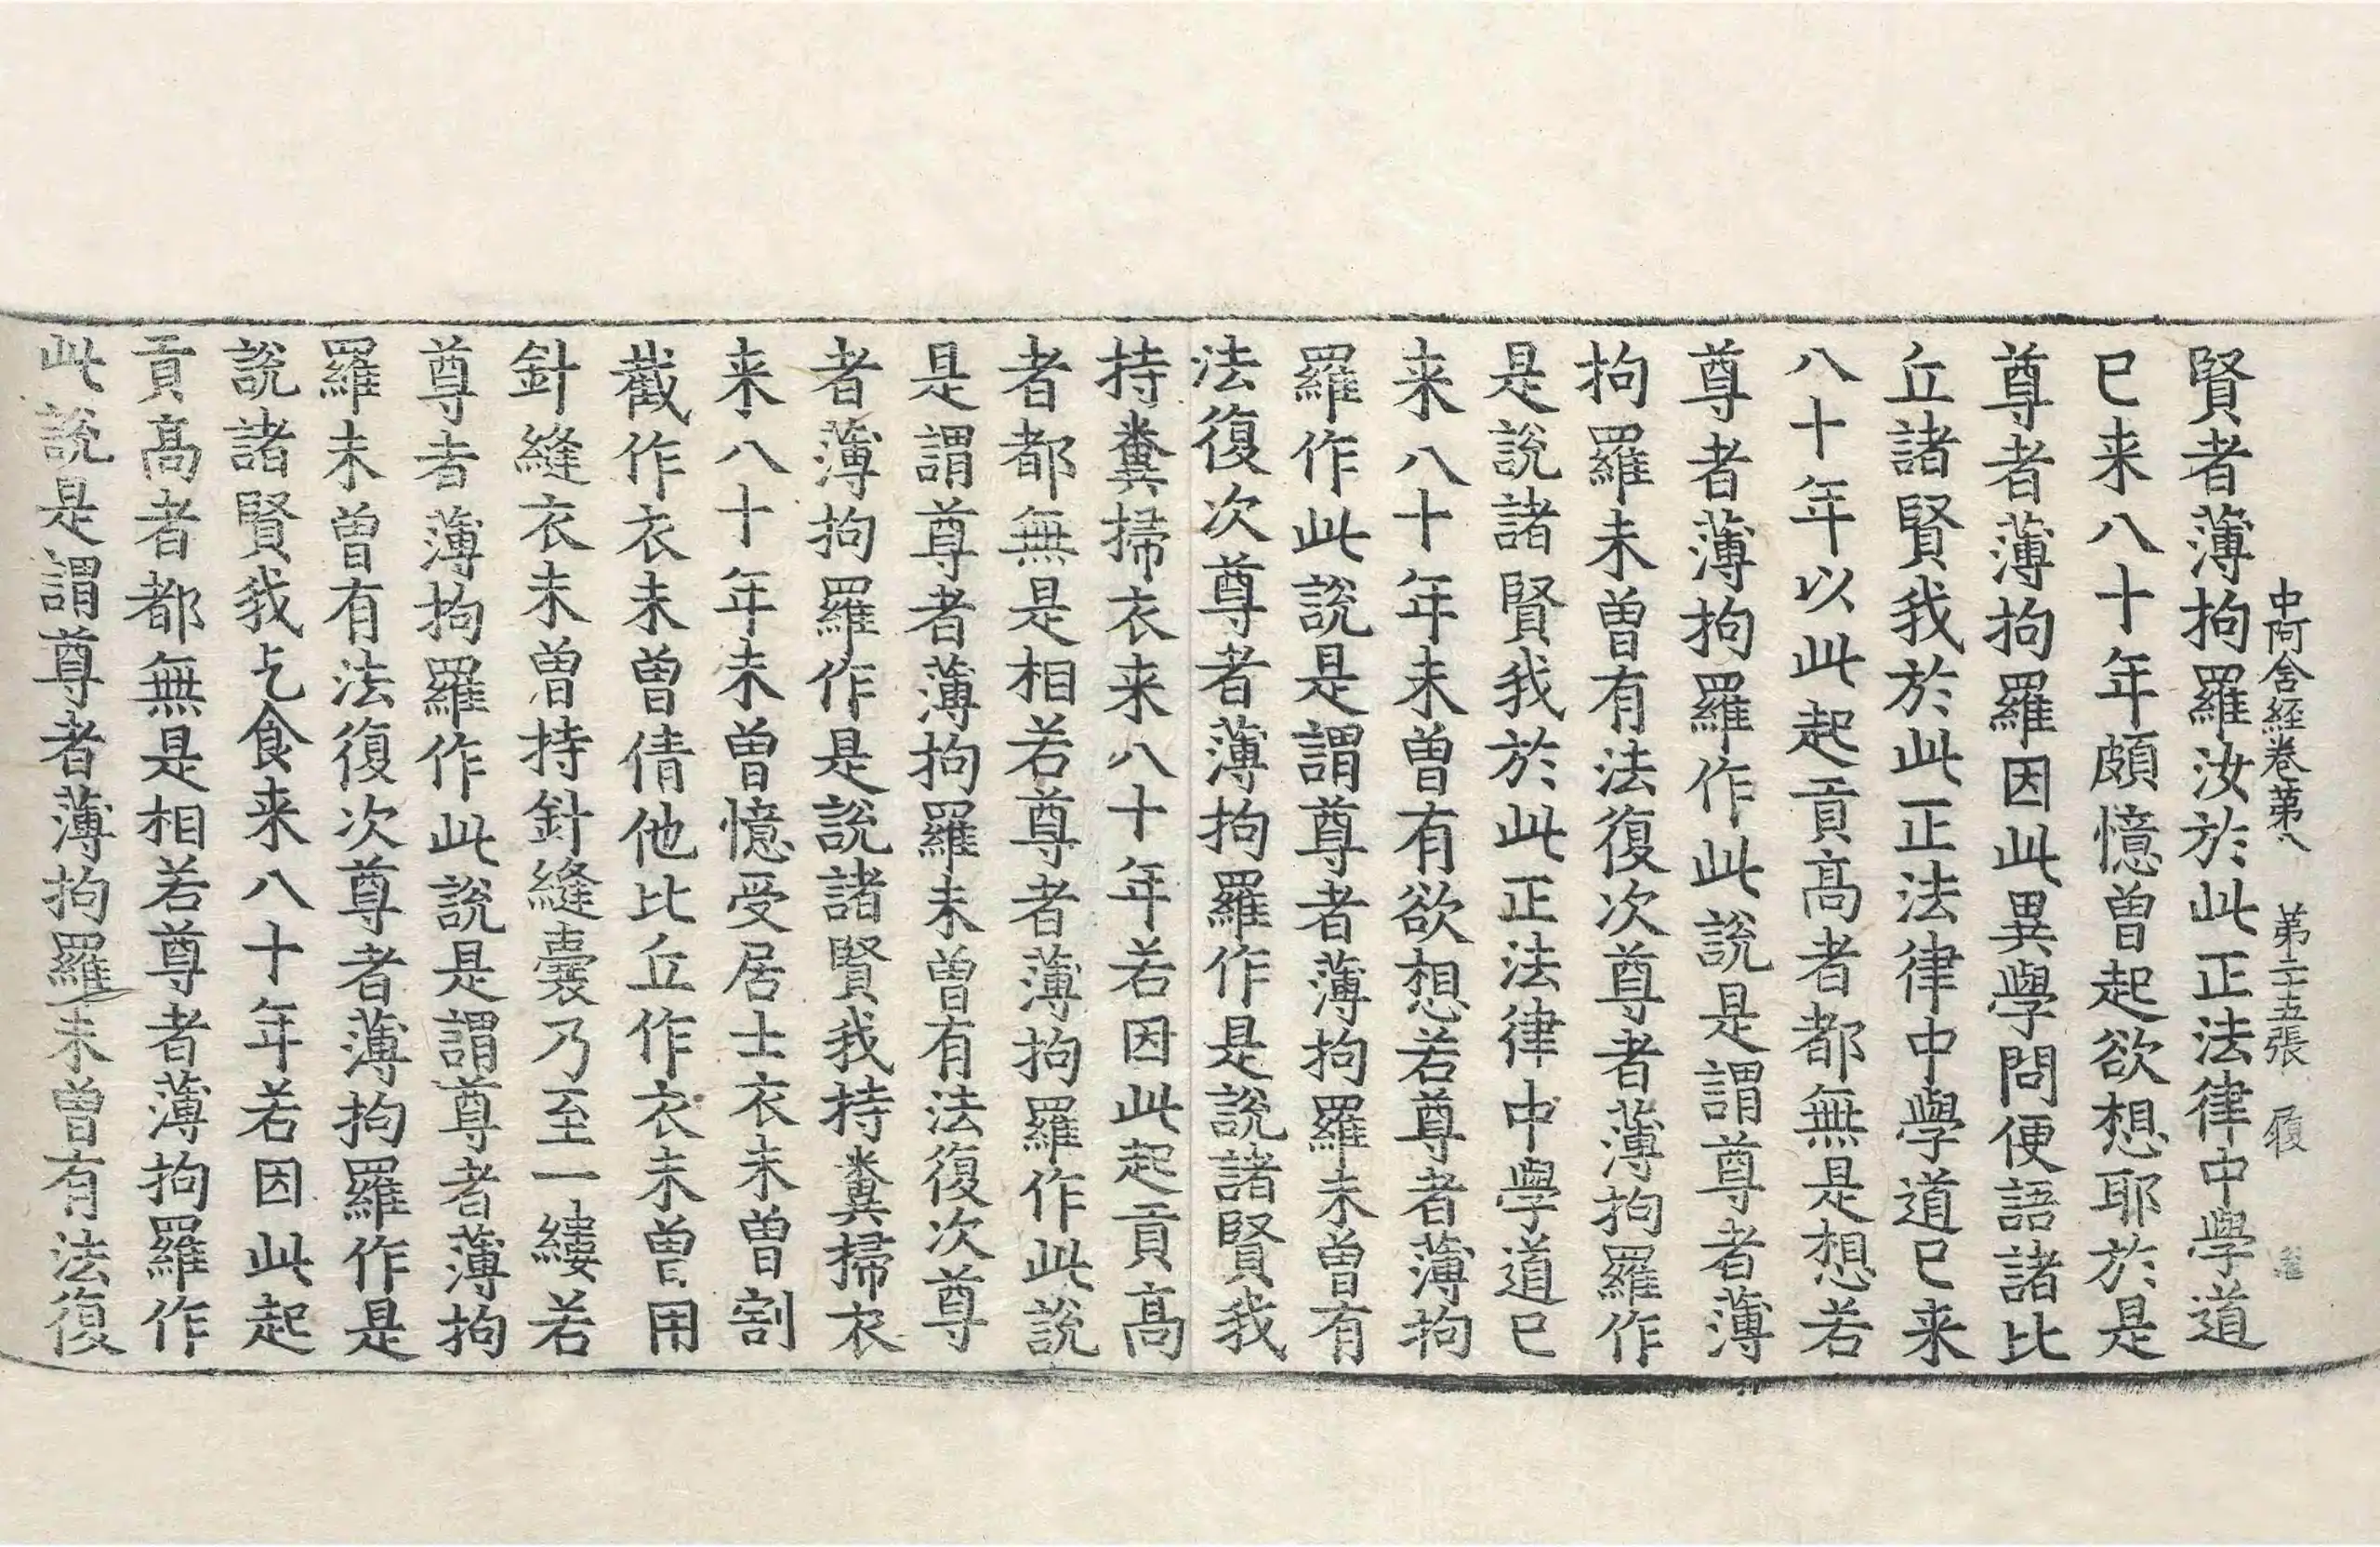 中阿含經卷第八 第二十五張 履
賢者薄拘羅汝於此正法律中學道
已来八十年頗憶曾起欲想耶於是
尊者薄拘羅因此異學問便語諸比
丘諸賢我於此正法律中學道已来
八十年以此起貢高者都無是想若
尊者薄拘羅作此說是謂尊者薄
拘羅未曾有法復次尊者薄拘羅作
是說諸賢我於此正法律中學道已
来八十年未曾有欲想若尊者薄拘
羅作此說是謂尊者薄拘羅未曾有
法復次尊者薄拘羅作是說諸賢我
持糞掃衣来八十年若因此起貢高
者都無是相若尊者薄拘羅作此說
是謂尊者薄拘羅未曾有法復次尊
者薄拘羅作是說諸賢我持糞掃衣
来八十年未曾憶受居士衣未曾割
截作衣未曾倩他比丘作衣未曾用
針縫衣未曾持針縫囊乃至一縷若
尊者薄拘羅作此說是謂尊者薄拘
羅未曾有法復次尊者薄拘羅作是
說諸賢我乞食来八十年若因此起
貢高者都無是相若尊者薄拘羅作
此說是謂尊者薄拘羅未曾有法復